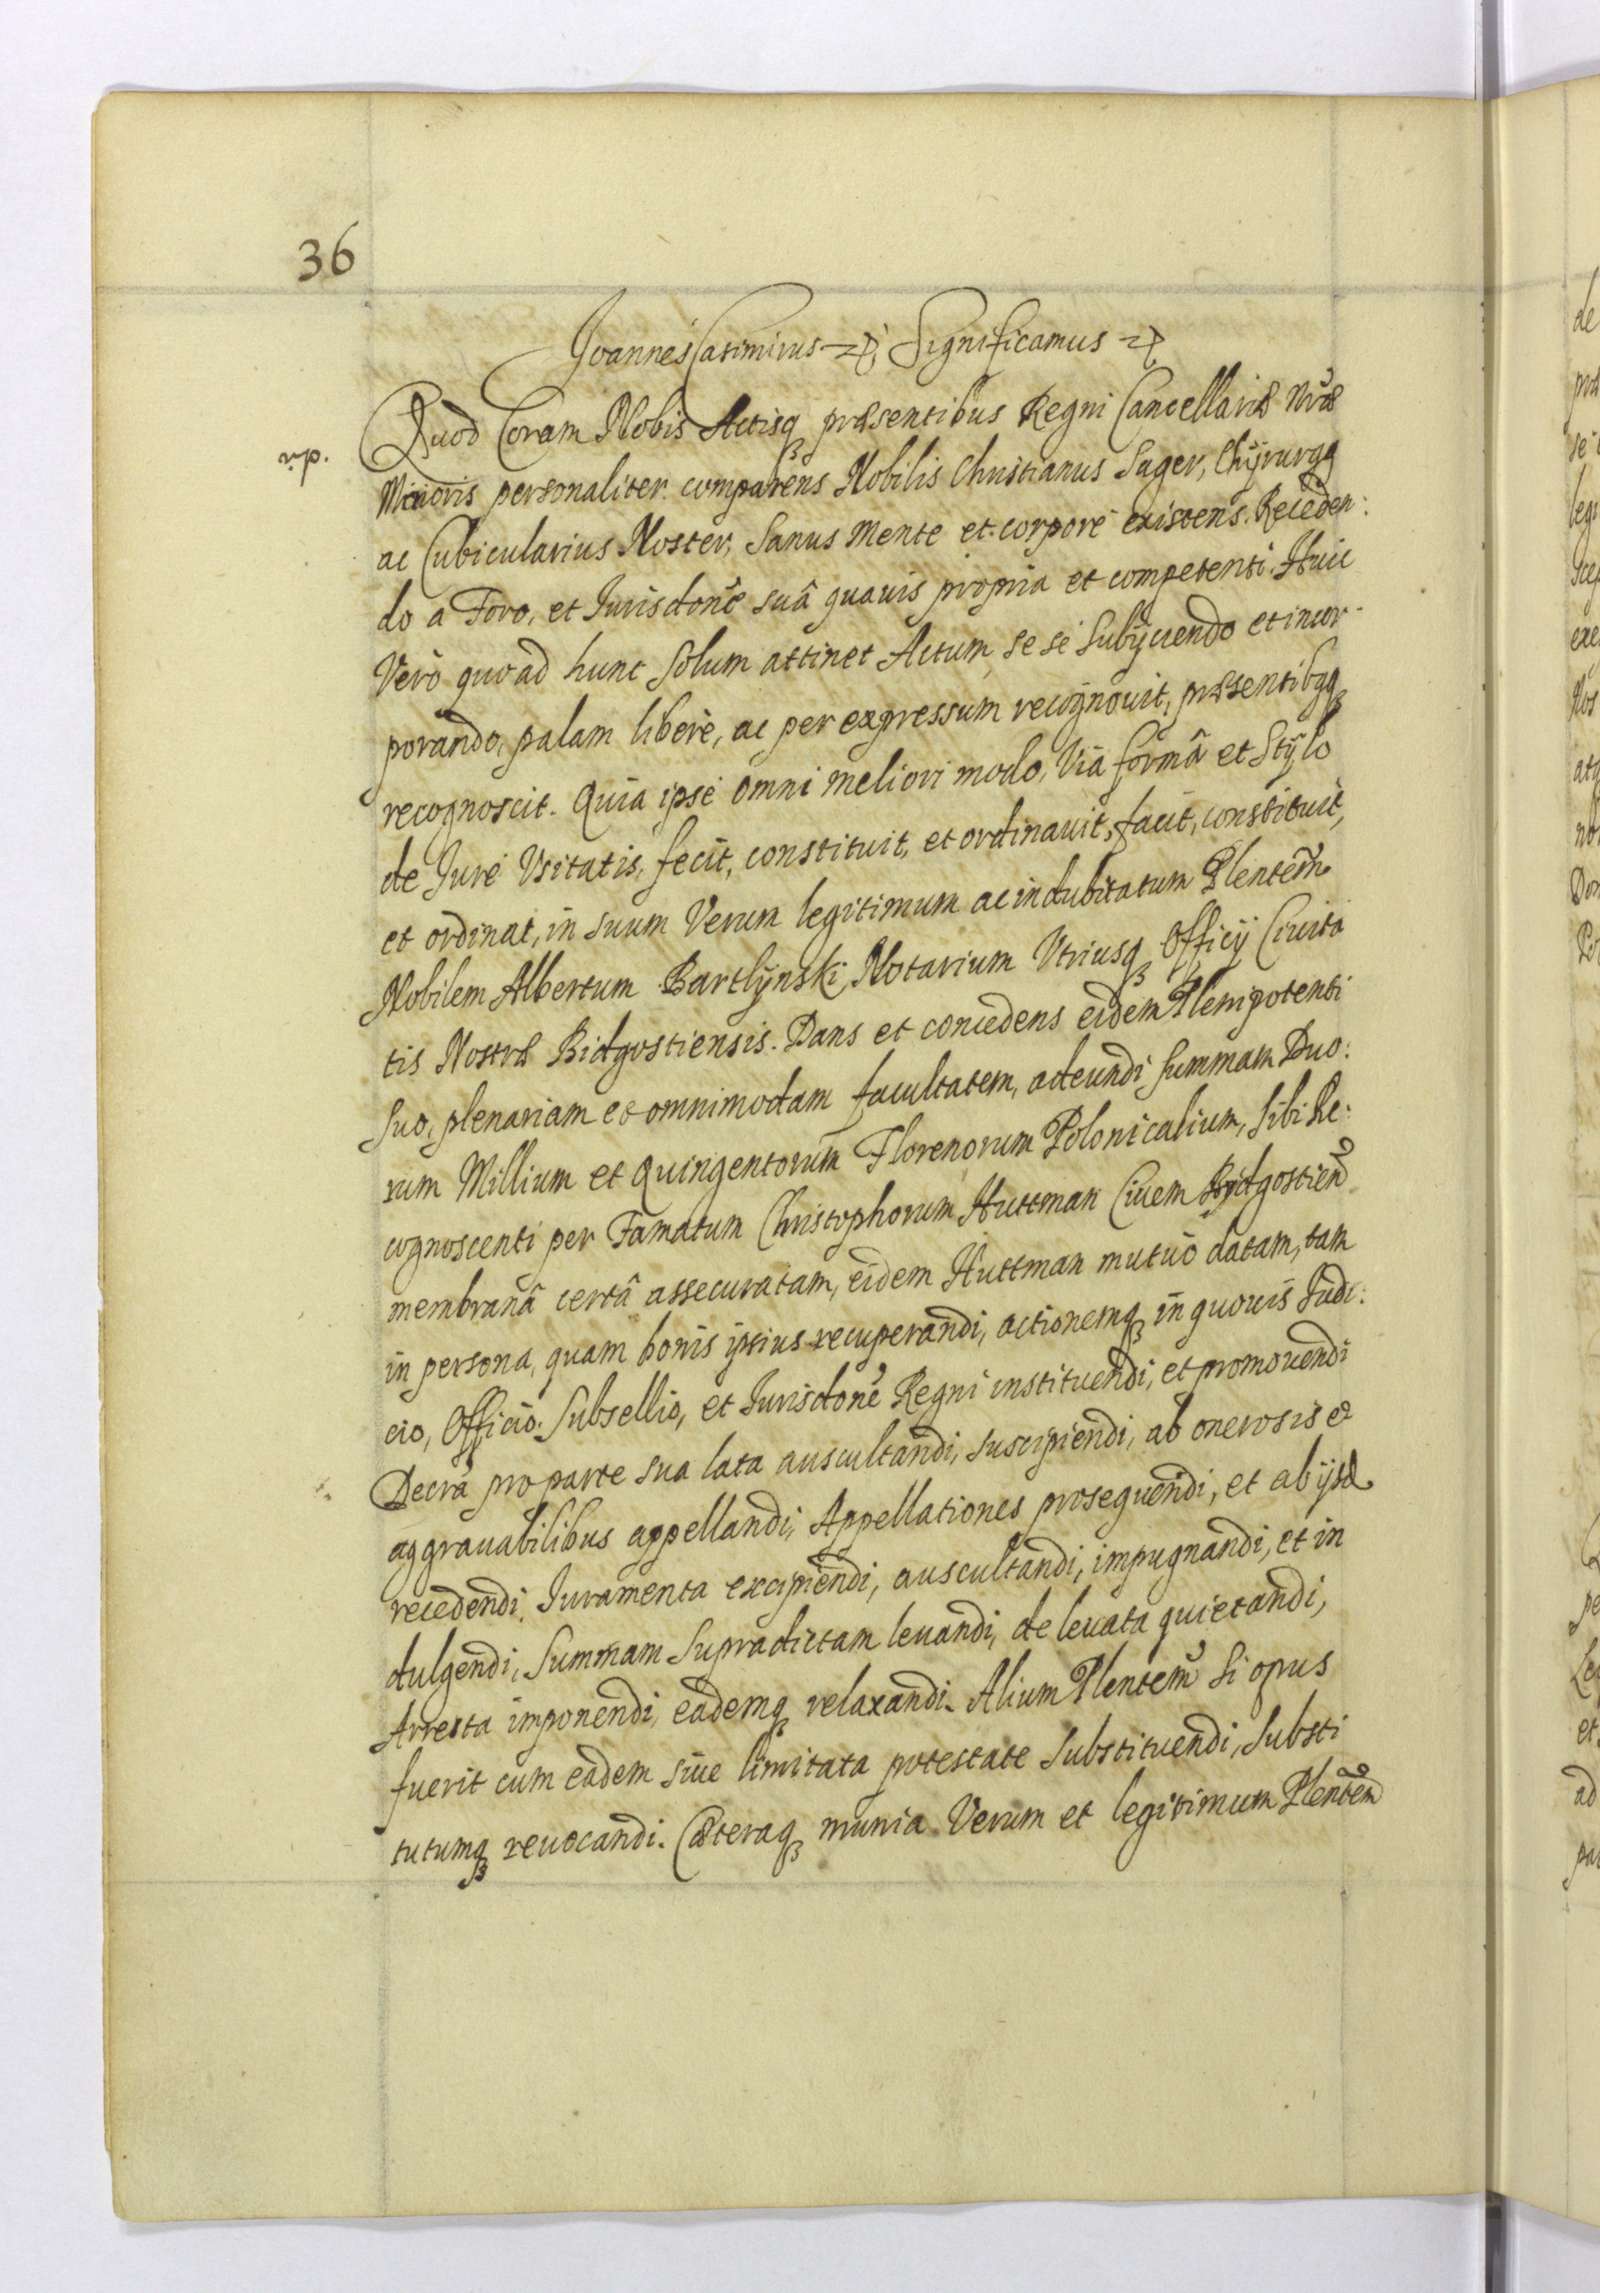 36
Joannes Casimirus Significamus
Quod Coram Nobis Actisq præsentibus Regni Cancellariæ Nræ
Minoris personaliter comparens Nobilis Christianus Sager, Chÿrurgq
ac Cubicularius Noster, Sanus Mente et corpore existens. Receden:
do a Foro, et Jurisdone suâ quauis propria et competenti. Huic
Verò quoad hunc Solum attinet Actum, se se Subÿciendo et incor-
porando, palam liberè, ac per expressum recognouit, præsentibqq
recognoscit. Quia ipse omni meliori modo, Via formâ et Stÿlo
de Jure Vsitatis, fecit, constituit, et ordinauit, facit, constituit,
et ordinat, in suum Verum legitimum ac indubitatum Plentem
Nobilem Albertum Bartlÿnski Notarium Vtriusq Officÿ Ciuita
tis Nostræ Bidgostiensis. Dans et concedens eidem Plenipotenti
Suo, plenariam et omnimodam facultatem, adeundi, Summam Duo:
rum Millium et Quingentorum Florenorum Polonicalium, Sibi Re:
cognoscenti per Famatum Christophorum Huttman Ciuem Bydgostien
membranâ certâ assecuratam, eidem Huttman mutuò datam, tam
in persona, quam bonis ipsius recuperandi, actionemq in quouis Judi:
cio, Officio. Subsellio, et Jurisdone Regni instituendi, et promouendi
Decra pro parte sua lata auscultandi, suscipiendi, ab onerosis et
aggrauabilibus appellandi, Appellationes prosequendi, et ab ÿsd
recedendi. Juramenta excipiendi, auscultandi, impugnandi, et in
dulgendi, Summam Supradictam leuandi, de leuata quietandi,
Arresta imponendi, eademq relaxandi. Alium Plentem Si opus
fuerit cum eadem siue limitata potestate Substituendi, Substi
tutumq reuocandi. Cæteraq munia Verum et legitimum Plentem